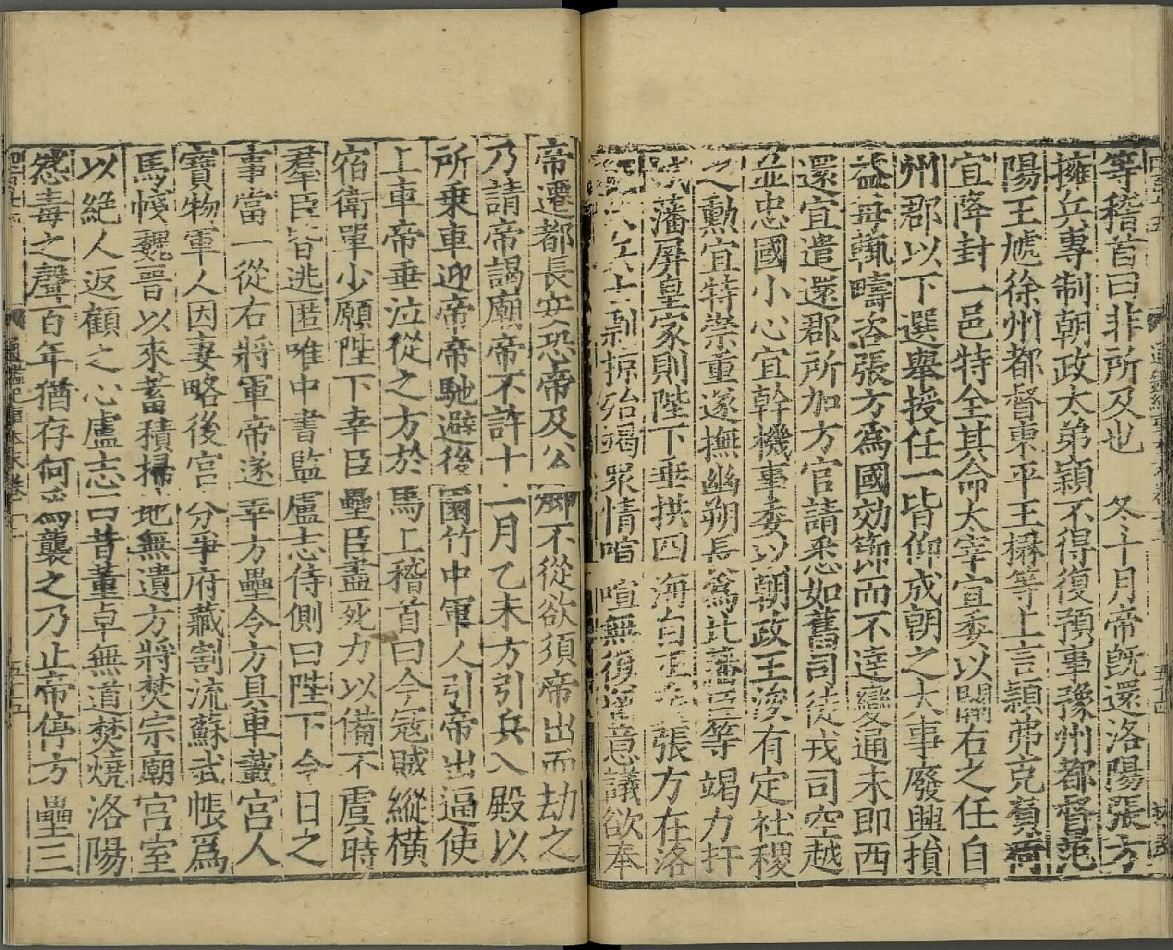 等稽首曰非所及也 冬十月帝旣還洛陽張方
擁兵專制朝政太弟穎不得復預事豫州都督范
陽王虓徐州都督東平王楙等上言穎弗克負荷
宜降封一邑特全其命太宰宜委以關右之任自
州郡以下選舉授任一皆仰成朝之大事廢興損
益每輒疇咨張方爲國効節而不達變通未即西
還宜遣還郡所加方官請悉如舊司徒戎司空越
並忠國小心宜幹機事委以朝政王浚有定社稷
之勲宜特崇重遂撫幽朔長爲北藩臣等竭力扞
城藩屏皇家則陛下垂拱四海自正 張方在洛
剽掠殆竭衆情喧喧無復 意議欲奉
帝遷都長安恐帝及公卿不從欲須帝出而劫之
乃請帝謁廟帝不許十一月乙未方引兵入殿以
所乗車迎帝帝馳避後園竹中軍人引帝出逼使
上車帝垂泣從之方於馬上稽首曰今冦賊縱横
宿衛單少願陛下幸臣壘臣盡死力以備不虞時
羣臣皆逃匿唯中書監盧志侍側曰陛下今日之
事當一從右將軍帝遂幸方壘令方具車載宮人
寶物軍人因妻略後宮分爭府藏割流蘇武帳爲
馬帴魏晉以來蓄積掃地無遺方將焚宗廟宮室
以絶人返顧之心盧志曰昔董卓無道焚燒洛陽
怨毒之聲百年猶存何爲襲之乃止帝停方壘三